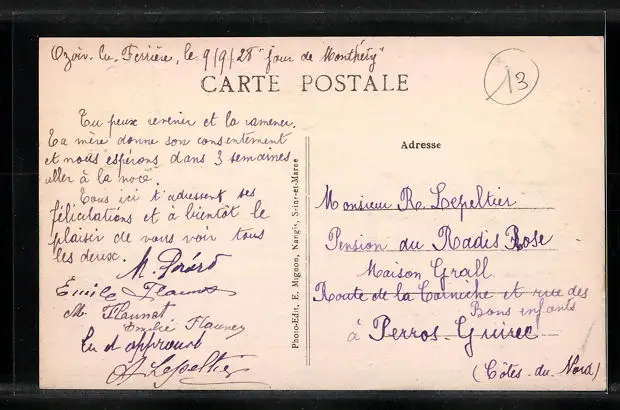 Ozoir-la-Ferrière, le 9/9/28 "jour de Monthéry"
13
CARTE POSTALE
Tu peux revenir et la ramener.
Ta mère donne son consentement
et nous espérons dans 3 semaines
aller à la noce.
Tous ici t'adressent ses
félicitations et à bientôt le
plaisir de vous voir tous
les deux.
M.
Émile
M.
Emilie
Lu et approuvé
Lepeltier
Photo-Edit. E. Mignon, Nangis, Seine-et-Marne
Adresse
Monsieur R. Lepeltier
Pension du Radis Rose
Maison Grall
Route de la Corniche et rue des
Bons enfants
à Perros-Guirec
(Côtes-du-Nord)